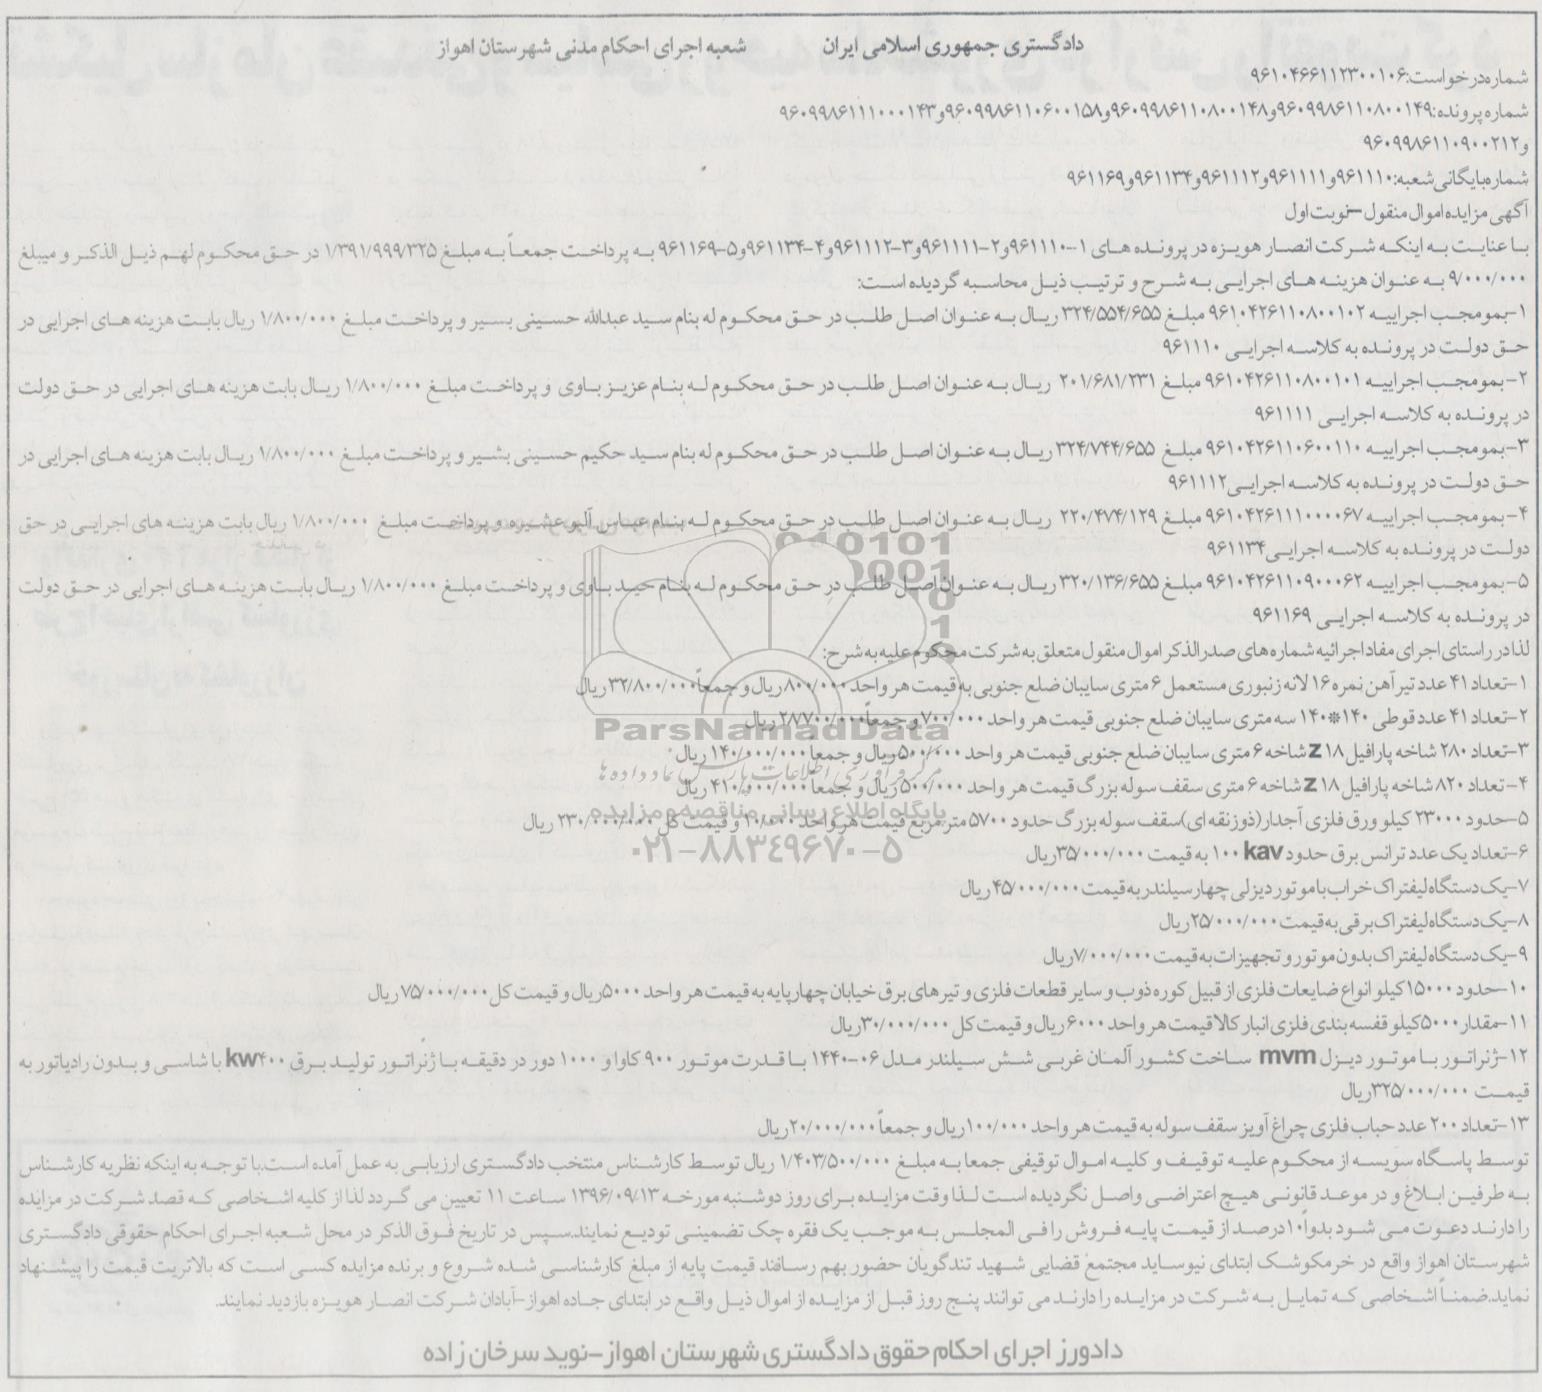 دادگستری جمهوری اسلامی ایران شعبه اجرای احکام مدنی شهرستان اهواز
شماره درخواست:۹۶۱۰۴۶۶۱۱۲۳۰۰۱۰۶
شماره پرونده:۹۶۰۹۹۸۶۱۱۰۸۰۰۱۴۹و۹۶۰۹۹۸۶۱۱۰۸۰۰۱۴۸و۹۶۰۹۹۸۶۱۱۰۶۰۰۱۵۸و۹۶۰۹۹۸۶۱۱۱۰۰۰۱۴۳
و۹۶۰۹۹۸۶۱۱۰۹۰۰۲۱۲
شماره بایگانی شعبه:۹۶۱۱۱۰و۹۶۱۱۱۱و۹۶۱۱۱۲و۹۶۱۱۳۴و۹۶۱۱۶۹
آگهی مزایده اموال منقول –نوبت اول
با عنایت به اینکه شرکت انصار هویزه در پرونده های ۱-۹۶۱۱۱۰و۲-۹۶۱۱۱۱و۳-۹۶۱۱۱۲و۴-۹۶۱۱۳۴و۵-۹۶۱۱۶۹ به پرداخت جمعاً به مبلغ ۱/۳۹۱/۹۹۹/۳۲۵ در حق محکوم لهم ذیل الذکر و میبلغ
۹/۰۰۰/۰۰۰ به عنوان هزینه های اجرایی به شرح و ترتیب ذیل محاسبه گردیده است:
۱-بموجب اجراییه ۹۶۱۰۴۲۶۱۱۰۸۰۰۱۰۲ مبلغ ۳۲۴/۵۵۴/۶۵۵ ریال به عنوان اصل طلب در حق محکوم له بنام سید عبدالله حسینی بسیر و پرداخت مبلغ ۱/۸۰۰/۰۰۰ ریال بابت هزینه های اجرایی در
حق دولت در پرونده به کلاسه اجرایی ۹۶۱۱۱۰
۲-بموجب اجراییه ۹۶۱۰۴۲۶۱۱۰۸۰۰۱۰۱ مبلغ ۲۰۱/۶۸۱/۲۳۱ ریال به عنوان اصل طلب در حق محکوم له بنام عزیز باوی و پرداخت مبلغ ۱/۸۰۰/۰۰۰ ریال بابت هزینه های اجرایی در حق دولت
در پرونده به کلاسه اجرایی ۹۶۱۱۱۱
۳-بموجب اجراییه ۹۶۱۰۴۲۶۱۱۰۶۰۰۱۱۰ مبلغ ۳۲۴/۷۴۴/۶۵۵ ریال به عنوان اصل طلب در حق محکوم له بنام سید حکیم حسینی بشیر و پرداخت مبلغ ۱/۸۰۰/۰۰۰ ریال بابت هزینه های اجرایی در
حق دولت در پرونده به کلاسه اجرایی۹۶۱۱۱۲
۴-بموجب اجراییه ۹۶۱۰۴۲۶۱۱۱۰۰۰۰۶۷ مبلغ ۲۲۰/۴۷۴/۱۲۹ ریال به عنوان اصل طلب در حق محکوم له بنام عباس آلبوعشیره و پرداخت مبلغ ۱/۸۰۰/۰۰۰ ریال بابت هزینه های اجرایی در حق
دولت در پرونده به کلاسه اجرایی۹۶۱۱۳۴
۵-بموجب اجراییه ۹۶۱۰۴۲۶۱۱۰۹۰۰۰۶۲ مبلغ ۳۲۰/۱۳۶/۶۵۵ ریال به عنوان اصل طلب در حق محکوم له بنام حیدر باوی و پرداخت مبلغ ۱/۸۰۰/۰۰۰ ریال بابت هزینه های اجرایی در حق دولت
در پرونده به کلاسه اجرایی ۹۶۱۱۶۹
لذا در راستای اجرای مفاد اجرائیه شماره های صدرالذکر اموال منقول متعلق به شرکت محکوم علیه به شرح:
۱-تعداد ۴۱ عدد تیر آهن نمره ۱۶ لانه زنبوری مستعمل ۶ متری سایبان ضلع جنوبی به قیمت هر واحد ۸۰۰/۰۰۰ ریال و جمعاً ۳۲/۸۰۰/۰۰۰ ریال
۲-تعداد ۴۱ عدد قوطی ۱۴۰*۱۴۰ سه متری سایبان ضلع جنوبی قیمت هر واحد ۷۰۰/۰۰۰ و جمعاً ۲۸۷۷۰۰/۰۰۰ ریال
ParsNamadData
۳-تعداد ۲۸۰ شاخه پارافیل Z ۱۸ شاخه ۶ متری سایبان ضلع جنوبی قیمت هر واحد ۵۰۰/۰۰۰ ریال و جمعا ۱۴۰/۰۰۰/۰۰۰ ریال
مرکز فرآوری اطلاعات پارس نماد داده ها
۴- تعداد ۸۲۰ شاخه پارافیل Z ۱۸ شاخه ۶ متری سقف سوله بزرگ قیمت هر واحد ۵۰۰/۰۰۰ ریال و جمعا ۴۱۰/۰۰۰/۰۰۰ ریال
پایگاه اطلاع رسانی مناقصه و مزایده
۵-حدود ۲۳۰۰۰ کیلو ورق فلزی آجدار(ذوزنقه ای)سقف سوله بزرگ حدود ۵۷۰۰ متر مربع قیمت هر واحد ۱۰/۰۰۰ و قیمت کل ۲۳۰/۰۰۰/۰۰۰ ریال
۰۲۱-۸۸۳۴۹۶۷۰-۵
۶-تعداد یک عدد ترانس برق حدود ۱۰۰ kav به قیمت ۳۵/۰۰۰/۰۰۰ریال
۷-یک دستگاه لیفتراک خراب با موتور دیزلی چهار سیلندر به قیمت ۴۵/۰۰۰/۰۰۰ ریال
۸-یک دستگاه لیفتراک برقی به قیمت ۲۵/۰۰۰/۰۰۰ریال
۹-یک دستگاه لیفتراک بدون موتور و تجهیزات به قیمت ۷/۰۰۰/۰۰۰ریال
۱۰-حدود ۱۵۰۰۰کیلو انواع ضایعات فلزی از قبیل کوره ذوب و سایر قطعات فلزی و تیرهای برق خیابان چهارپایه به قیمت هر واحد ۵۰۰۰ریال و قیمت کل ۷۵/۰۰۰/۰۰۰ریال
۱۱-مقدار ۵۰۰۰کیلو قفسه بندی فلزی انبار کالا قیمت هر واحد ۶۰۰۰ ریال و قیمت کل ۳۰/۰۰۰/۰۰۰ریال
۱۲-ژنراتور با موتور دیزل mvm ساخت کشور آلمان غربی شش سیلندر مدل ۰۶-۱۴۴۰ با قدرت موتور ۹۰۰ کاوا و ۱۰۰۰ دور در دقیقه با ژنراتور تولید برق ۴۰۰kw با شاسی و بدون رادیاتور به
قیمت ۳۲۵/۰۰۰/۰۰۰ریال
۱۳-تعداد ۲۰۰ عدد حباب فلزی چراغ آویز سقف سوله به قیمت هر واحد ۱۰۰/۰۰۰ریال و جمعاً ۲۰/۰۰۰/۰۰۰ریال
توسط پاسگاه سویسه از محکوم علیه توقیف و کلیه اموال توقیفی جمعا به مبلغ ۱/۴۰۳/۵۰۰/۰۰۰ ریال توسط کارشناس منتخب دادگستری ارزیابی به عمل آمده است.با توجه به اینکه نظریه کارشناس
به طرفین ابلاغ و در موعد قانونی هیچ اعتراضی واصل نگردیده است لذا وقت مزایده برای روز دوشنبه مورخه ۱۳۹۶/۰۹/۱۳ ساعت ۱۱ تعیین می گردد لذا از کلیه اشخاصی که قصد شرکت در مزایده
را دارند دعوت می شود بدواً۱۰درصد از قیمت پایه فروش را فی المجلس به موجب یک فقره چک تضمینی تودیع نمایند.سپس در تاریخ فوق الذکر در محل شعبه اجرای احکام حقوقی دادگستری
شهرستان اهواز واقع در خرمکوشک ابتدای نیوساید مجتمع قضایی شهید تندگویان حضور بهم رسانند قیمت پایه از مبلغ کارشناسی شده شروع و برنده مزایده کسی است که بالاتریت قیمت را پیشنهاد
نماید.ضمناً اشخاصی که تمایل به شرکت در مزایده را دارند می توانند پنج روز قبل از مزایده از اموال ذیل واقع در ابتدای جاده اهواز-آبادان شرکت انصار هویزه بازدید نمایند.
دادورز اجرای احکام حقوق دادگستری شهرستان اهواز-نوید سرخان زاده